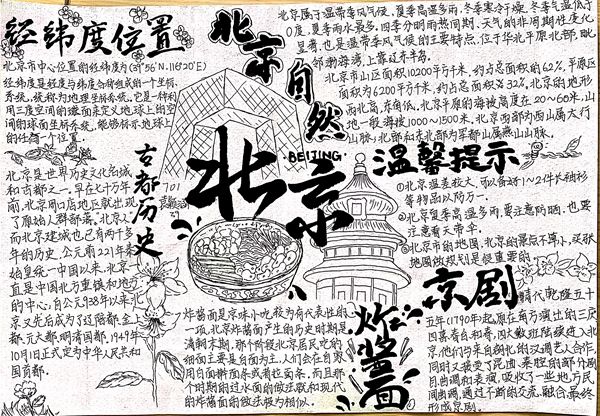 经纬度位置
北京市中心位置的经纬度为(39°56′N,116°20′E)
经纬度是经度与纬度合称组成的一个坐标
系统,统称为地理坐标系统,它是一种利
用三度空间的球面来定义地球上的空
间的球面坐标系统,能够标示地球上
的任何一个位置
北京自然
北京属于温带季风气候,夏季高温多雨,冬季寒冷干燥,冬季气温低于
0度,夏季雨水最多,四季分明雨热同期,天气的非周期性变化
显著,也是温带季风气候的主要特点,位于华北平原北部,毗
邻渤海湾,上靠辽东半岛。
北京市山区面积10200平方千米,约占总面积的62%,平原区
面积为6200平方千米,约占总面积的32%,北京的地形
西北高,东南低,北京平原的海拔高度在20~60米,山
地一般海拔1000~1500米,北京西部为西山属太行
山脉,北部和东北部为军都山属燕山山脉。
北京
·BEIJING·
古都历史
北京是世界历史文化名城
和古都之一,早在七十万年
前,北京周口店地区就出现
了原始人群部落,北京人
而北京建城也已有两千多
年的历史,公元前221年秦
始皇统一中国以来,北京一
直是中国北方重镇和地方
的中心,自公元938年以来北
京又先后成为了辽陪都,金上
都,元大都,明清国都,1949年
10月1日正式定为中华人民共和
国首都。
701
温馨提示
①北京温差较大,可以备好1~2件长袖衫
等物品以防万一。
②北京夏季高温多雨,要注意防晒,也要
注意看天带伞。
③北京市的地图,北京的景点不算小,买张
地图做规划是很重要的。
炸酱面
炸酱面是京味小吃较为有代表性的
一项,北京炸酱面产生的历史时期是
清朝末期,那个阶段北京居民吃的
细面主要是自面为主,人们会在自家
用自面擀面条或者拉面条,而且那
个时期的过水面的做法就和现代
的炸酱面的做法极为相似。
京剧
清代乾隆五十
五年(1790年)起,原在南方演出的三庆
四喜春台和春,四大徽班陆续进入北
京,他们与来自湖北的汉调艺人合作,
同时又接受了昆曲,秦腔的部分剧
目曲调和表演,吸收了一些地方民
间曲调,通过不断的交流,融合,最终
形成京剧。